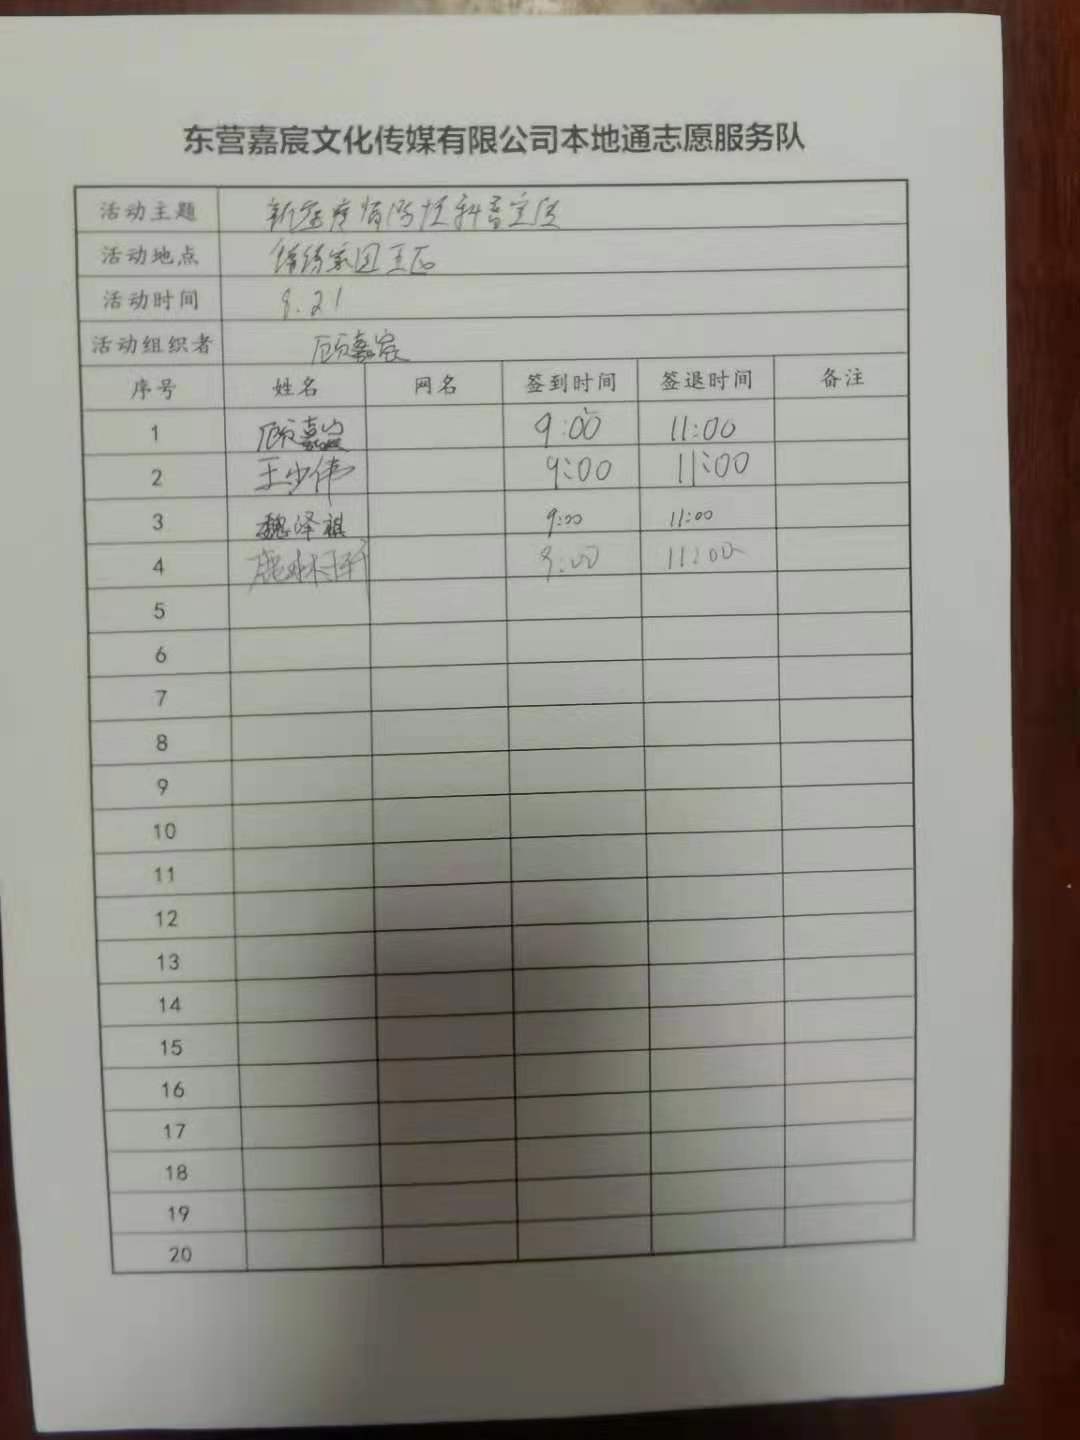 东营嘉宸文化传媒有限公司本地通志愿服务队
活动主题 新冠疫情防控科普宣传
活动地点 锦绣家园五区
活动时间 8.21
活动组织者 顾嘉宸
序号 姓名 网名 签到时间 签退时间 备注
1 顾嘉宸 9:00 11:00
2 王少伟 9:00 11:00
3 魏泽祺 9:00 11:00
4 9:00 11:00
5
6
7
8
9
10
11
12
13
14
15
16
17
18
19
20